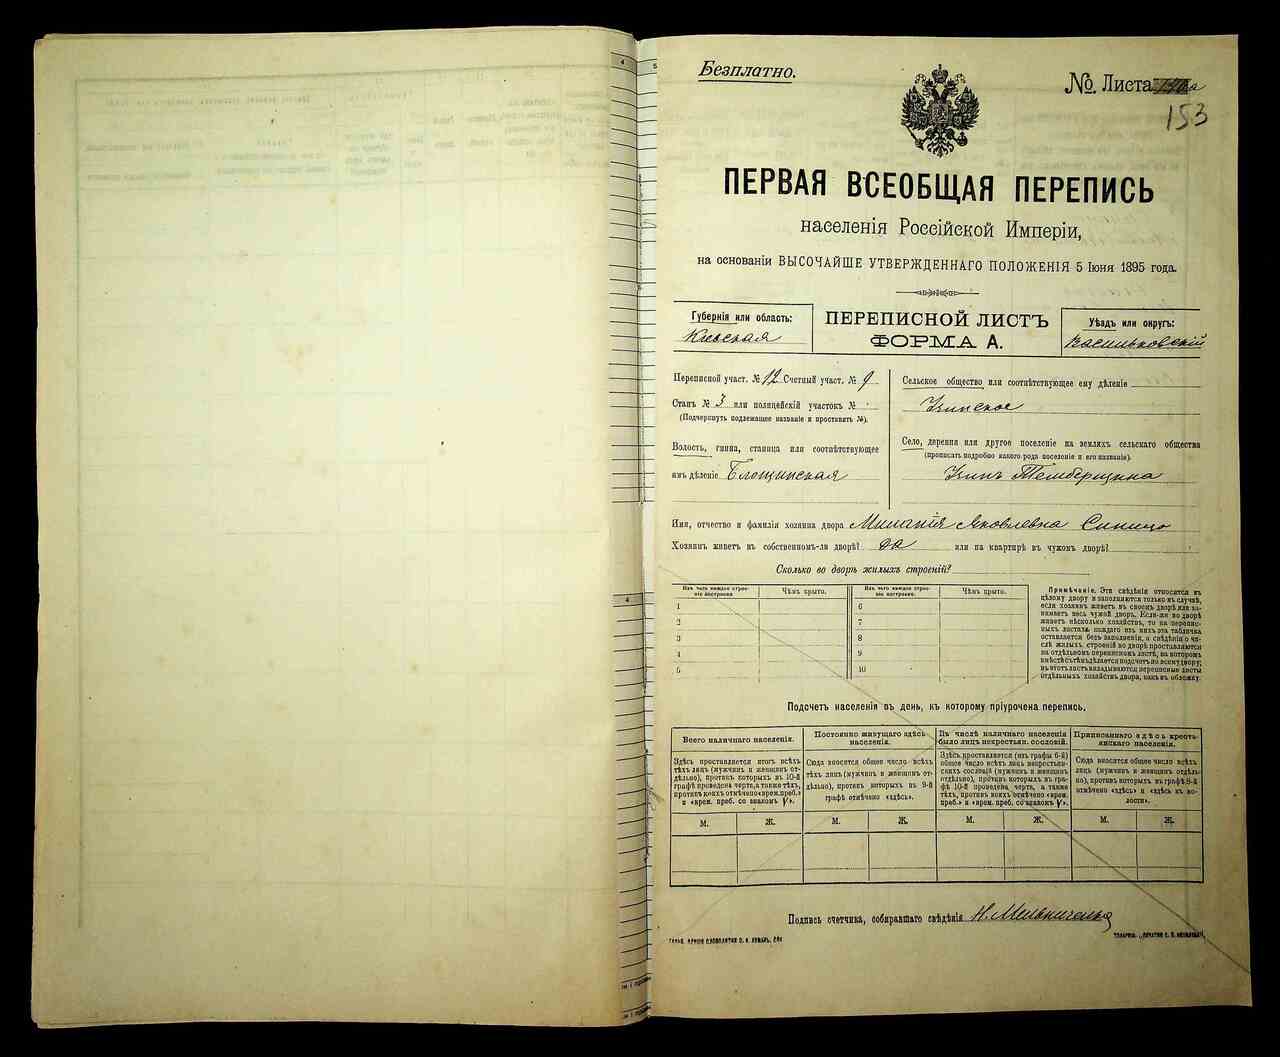 Безплатно.
№ Листа
153
ПЕРВАЯ ВСЕОБЩАЯ ПЕРЕПИСЬ
населенія Россійской Имперіи,
на основаніи ВЫСОЧАЙШЕ УТВЕРЖДЕННАГО ПОЛОЖЕНІЯ 5 Іюня 1895 года.
Губернія или область:
Кіевская
ПЕРЕПИСНОЙ ЛИСТЪ
ФОРМА А.
Уѣздъ или округъ:
Васильковскій
Переписной участ. № 12 Счетный участ. № 9
Станъ № 3 или полицейскій участокъ №
(Подчеркнуть подлежащее названіе и проставить №).
Волость, гмина, станица или соотвѣтствующее
имъ дѣленіе Блощинская
Сельское общество или соотвѣтствующее ему дѣленіе
Узинское
Село, деревня или другое поселеніе на земляхъ сельскаго общества
(прописать подробно какого рода поселеніе и его названіе).
Узинъ Темберщина
Имя, отчество и фамилія хозяина двора Миланія Яковлевна Синица
Хозяинъ живетъ въ собственномъ-ли дворѣ? да или на квартирѣ въ чужомъ дворѣ?
Сколько во дворѣ жилыхъ строеній?
Изъ чего каждое строеніе построено
Чѣмъ крыто.
Изъ чего каждое строеніе построено
Чѣмъ крыто.
1
2
3
4
5
6
7
8
9
10
Примѣчаніе. Эти свѣдѣнія относятся къ
цѣлому двору и заполняются только въ случаѣ,
если хозяинъ живетъ въ своемъ дворѣ или занимаетъ
весь чужой дворъ. Если-же во дворѣ
живетъ нѣсколько хозяйствъ, то на переписныхъ
листахъ каждаго изъ нихъ эта табличка
оставляется безъ заполненія, а свѣдѣнія о числѣ
жилыхъ строеній во дворѣ проставляются
на отдѣльномъ переписномъ листѣ, на которомъ
вмѣстѣ съ тѣмъ дѣлается подсчетъ по всему двору;
въ этотъ листъ вкладываются переписные листы
отдѣльныхъ хозяйствъ двора, какъ въ обложку.
Подсчетъ населенія въ день, къ которому пріурочена перепись.
Всего наличнаго населенія.
Здѣсь проставляется итогъ всѣхъ
тѣхъ лицъ (мужчинъ и женщинъ отдѣльно),
противъ которыхъ въ 10-й
графѣ проведена черта, а также тѣхъ,
противъ коихъ отмѣчено «врем. преб.»
и «врем. преб. со знакомъ V».
Постоянно живущаго здѣсь
населенія.
Сюда вносится общее число всѣхъ
тѣхъ лицъ (мужчинъ и женщинъ отдѣльно),
противъ которыхъ въ 9-й
графѣ отмѣчено «здѣсь».
Въ числѣ наличнаго населенія
было лицъ некрестьян. сословій.
Здѣсь проставляется (изъ графы 6-й)
общее число всѣхъ лицъ некрестьянскихъ
сословій (мужчинъ и женщинъ
отдѣльно), противъ которыхъ въ графѣ
10-й проведена черта, а также
тѣхъ, противъ коихъ отмѣчено «врем.
преб.» и «врем. преб. со знакомъ V».
Приписаннаго здѣсь крестьянскаго
населенія.
Сюда вносится общее число всѣхъ
лицъ (мужчинъ и женщинъ отдѣльно),
противъ которыхъ въ графѣ 8-й
отмѣчено «здѣсь» и «здѣсь въ волости».
М. Ж. М. Ж. М. Ж. М. Ж.
Подпись счетчика, собиравшаго свѣдѣнія Н. Мельниченко